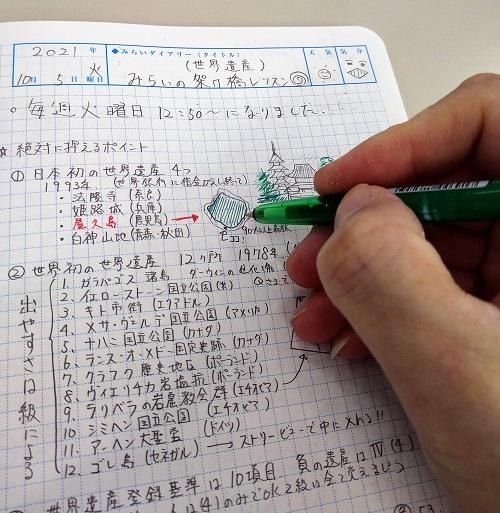 2021 年
10月 5日 火曜日
◆みらいダイアリー(タイトル)
(世界遺産)
みらいの架け橋レッスン⑤
天気 気分
○毎週火曜日 12:50~になりました。
☆絶対に押えるポイント
① 日本初の世界遺産 4つ
1993年 (世界銀行に借金かえし終て)
・法隆寺(奈良)
・姫路城(兵庫)
・屋久島(鹿児島) →
・白神山地(青森・秋田)
ココ!
② 世界初の世界遺産 12ヶ所 1978年
出やすさは級による
1. ガラパゴス諸島 ダーウィンの進化論
2. イエローストーン国立公園(米)
3. キト市街(エクアドル)
4. メサ・ヴェルデ国立公園(アメリカ)
5. ナハニ国立公園(カナダ)
6. ランス・オ・メドー国定史跡(カナダ)
7. クラクフ歴史地区(ポーランド)
8. ヴィエリチカ岩塩坑(ポーランド)
9. ラリベラの岩窟教会群(エチオピア)
10. シミエン国立公園(エチオピア)
11. アーヘン大聖堂(ドイツ)
12. ゴレ島(セネガル) → ストリートビューで中に入れる!!
世界遺産登録基準は10項目 負の遺産はⅣ(4)
は(4)のみでOK 2級は全て覚えましょう